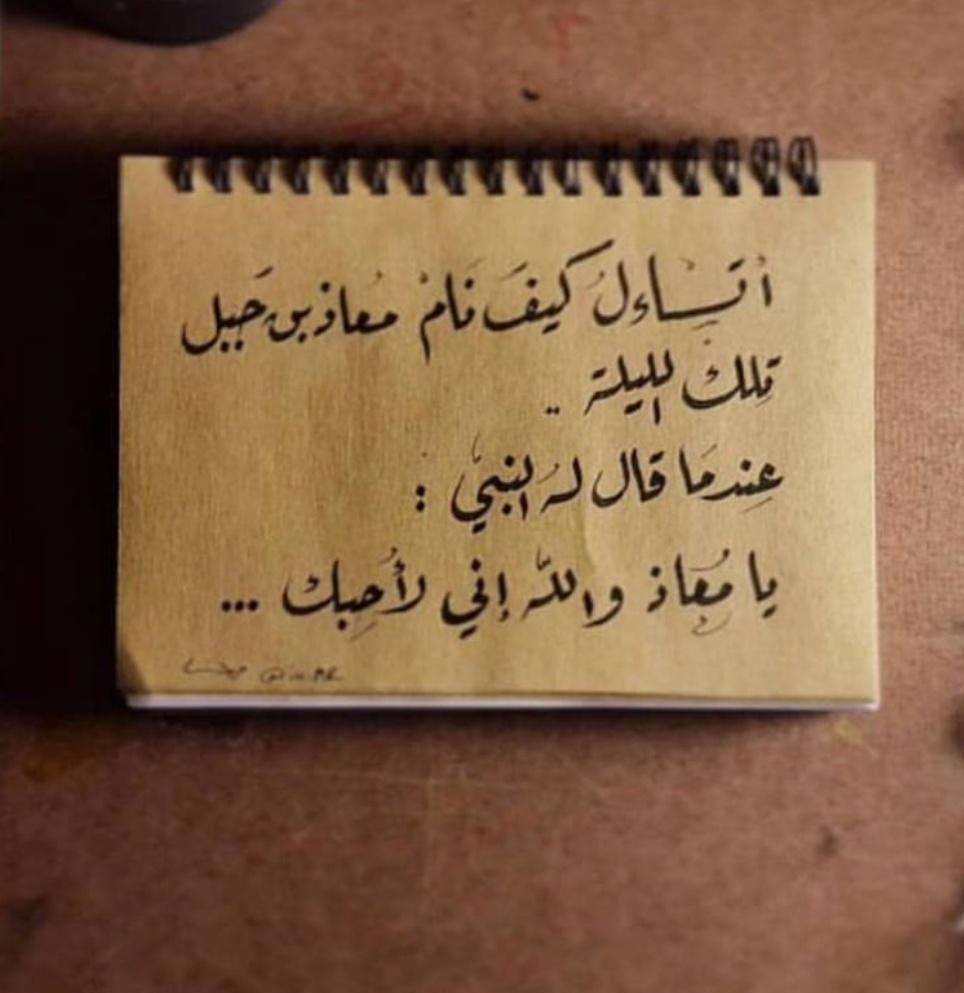 أتساءلُ كيفَ نَامْ معاذ بن جَبل
تِلك الليلة ..
عِندمَا قال لهُ النبيّ :
يا مُعاذ والله إني لأُحِبك ...